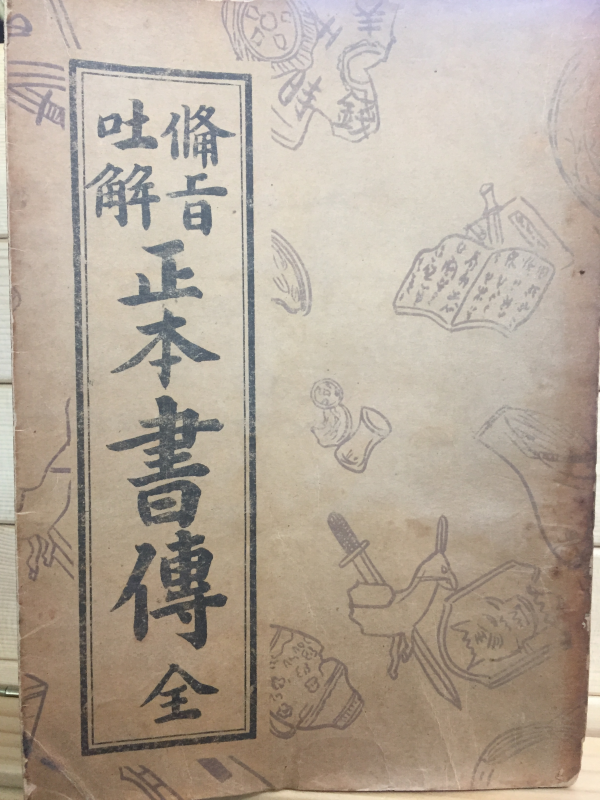 備旨
吐解
正本書傳 全
美
錢